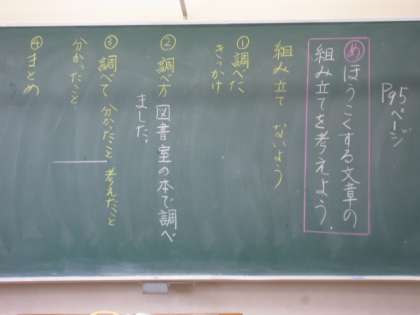 P95ページ
め ほうこくする文章の
組み立てを考えよう。
組み立て ないよう
① 調べた
きっかけ
② 調べ方 図書室の本で調べ
ました。
③ 調べて 分かったこと 考えたこと
分かったこと
④ まとめ